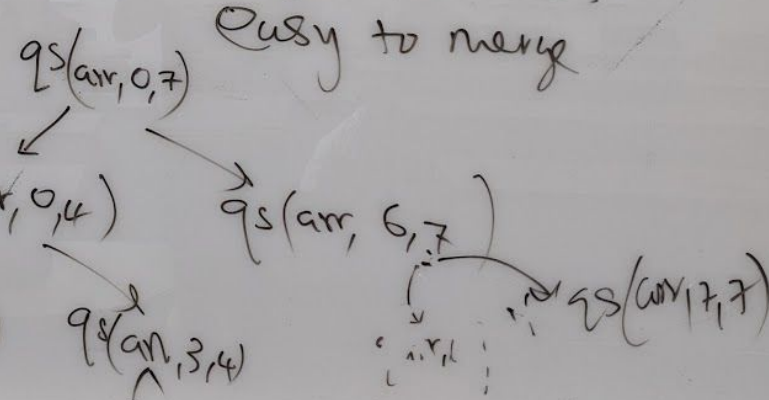 easy to merge
qs(arr,0,7)
r,0,4)
qs(arr, 6,7)
qs(arr,7,7)
qs(arr,3,4)